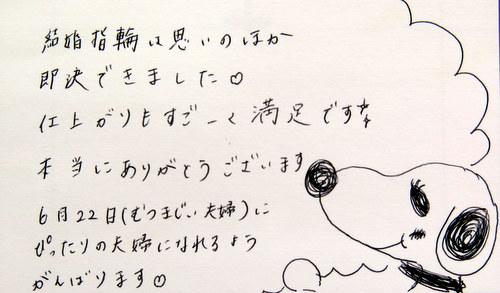 結婚指輪は思いのほか
即決できました♡
仕上がりもすごーく満足です☆
本当にありがとうございます
6月22日(むつまじい夫婦)に
ぴったりの夫婦になれるよう
がんばります♡